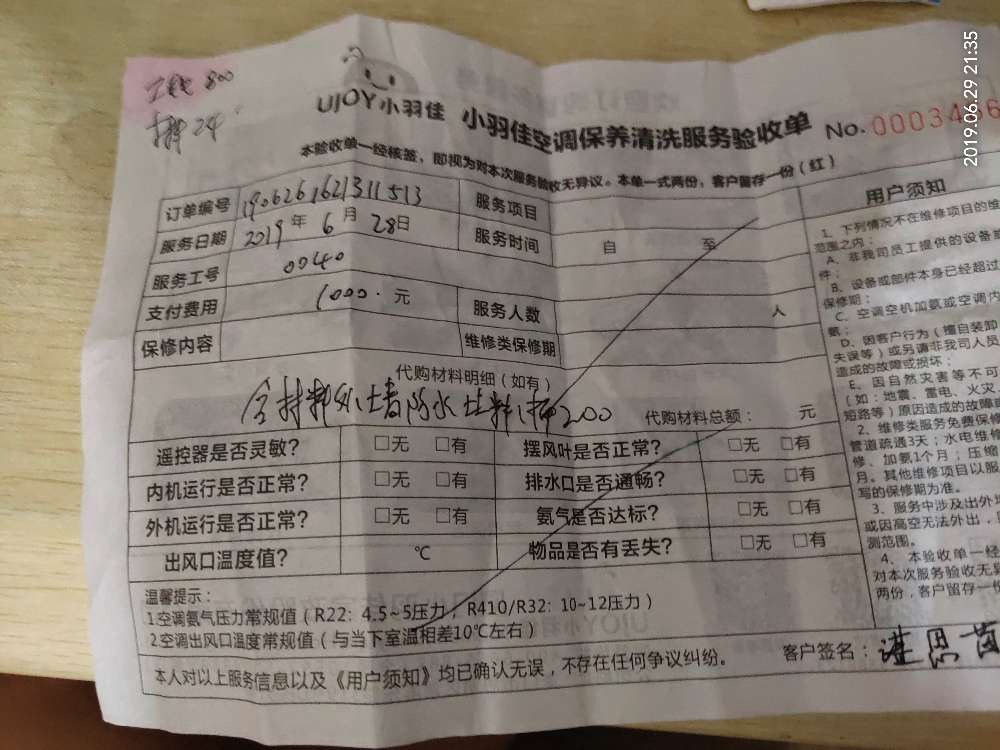 2019.06.29 21:35
工钱 800
UJOY小羽佳 小羽佳空调保养清洗服务验收单 No.
本验收单一经核签，即视为对本次服务验收无异议。本单一式两份，客户留存一份（红）
订单编号 1906261621311513 服务项目
服务日期 2019年6月28日 服务时间 自 至
服务工号 0040
支付费用 1000.元 服务人数 人
保修内容 维修类保修期
代购材料明细（如有）
含材料外墙防水 200 代购材料总额： 元
遥控器是否灵敏？ □无 □有 摆风叶是否正常？ □无 □有
内机运行是否正常？ □无 □有 排水口是否通畅？ □无 □有
外机运行是否正常？ □无 □有 氨气是否达标？ □无 □有
出风口温度值？ ℃ 物品是否有丢失？ □无 □有
温馨提示：
1.空调氨气压力常规值（R22: 4.5~5压力，R410/R32: 10~12压力）
2.空调出风口温度常规值（与当下室温相差10℃左右）
本人对以上服务信息以及《用户须知》均已确认无误，不存在任何争议纠纷。
客户签名：
用户须知
1、下列情况不在维修项目的维
范围之内：
A、非我司员工提供的设备或
件；
B、设备或部件本身已经超过
保修期；
C、空调空机加氨或空调内
氨；
D、因客户行为（擅自装卸
失误等）或另请非我司人员
造成的故障或损坏；
E、因自然灾害等不可
（如：地震、雷电、火灾
短路等）原因造成的故障或
2、维修类服务免费保修
管道疏通3天；水电维修
修、加氨1个月；压缩
月。其他维修项目以服
写的保修期为准。
3、服务中涉及出外墙
或因高空无法外出，
测范围。
4、本验收单一经
对本次服务验收无异
两份，客户留存一份